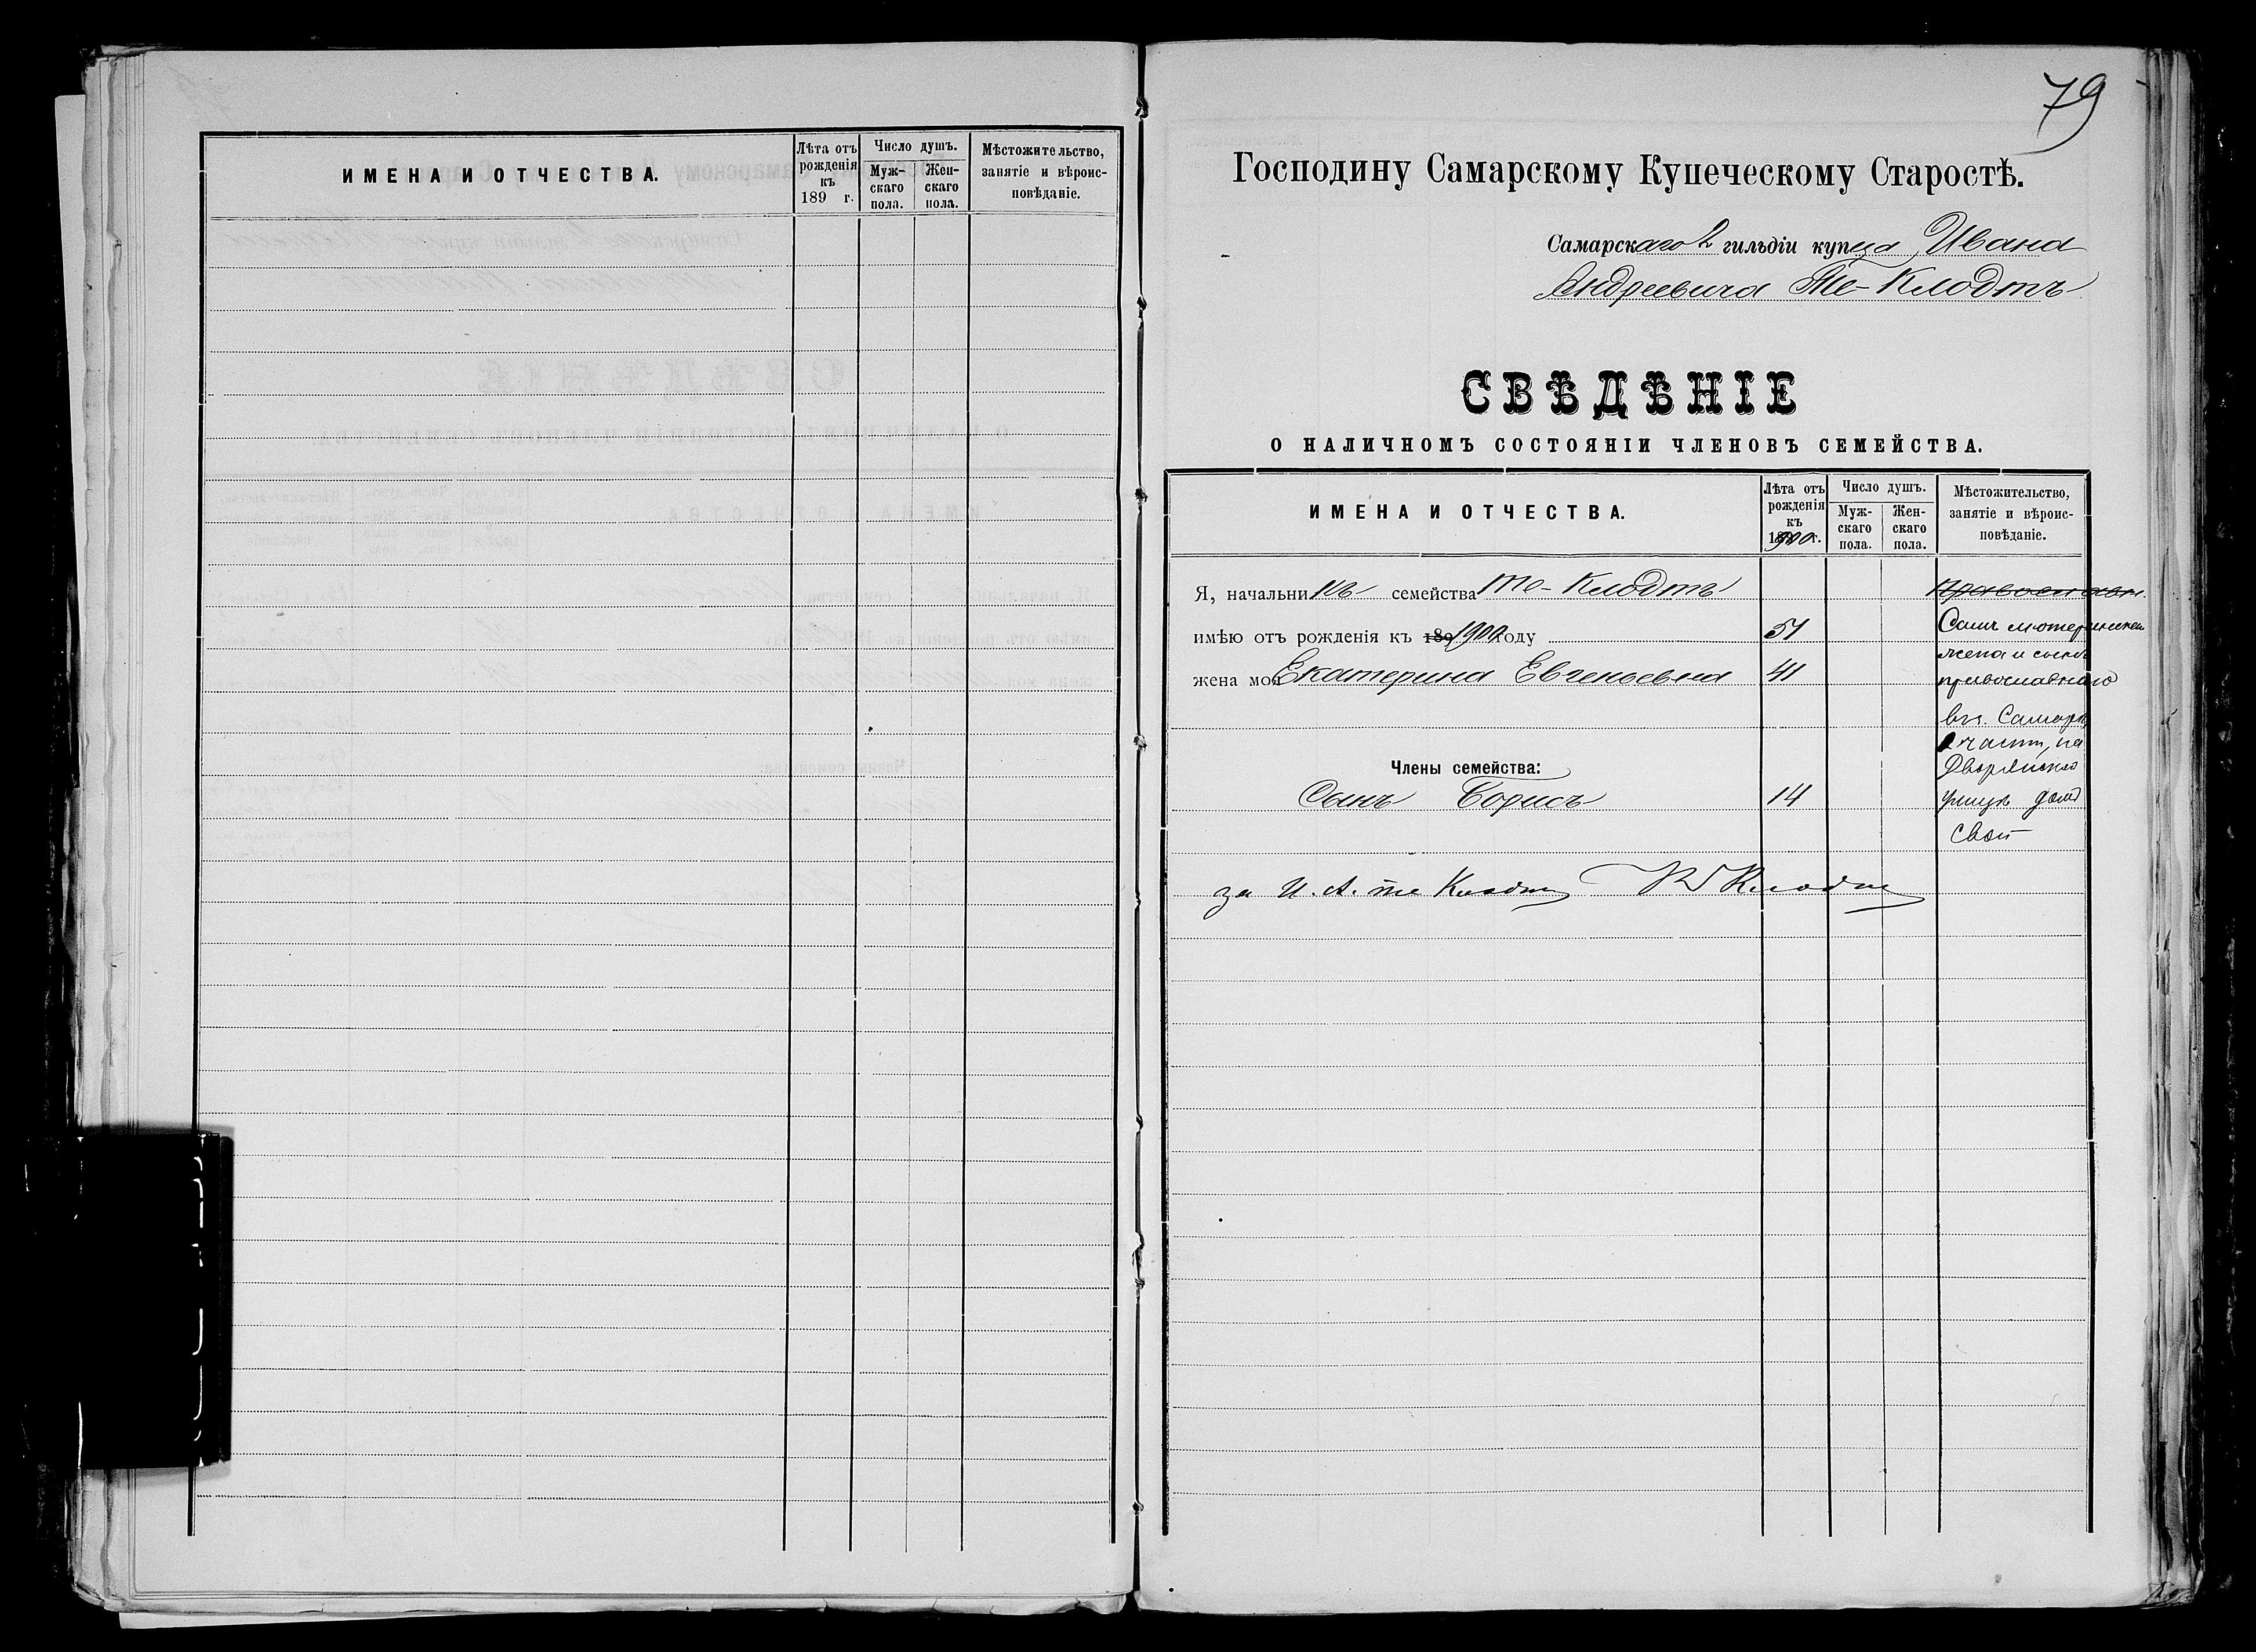 ИМЕНА И ОТЧЕСТВА.
Лѣта отъ рожденія къ 189 г.
Число душъ.
Муж-скаго пола.
Жен-скаго пола.
Мѣстожительство, занятіе и вѣроис-повѣданіе.
79
Господину Самарскому Купеческому Старостѣ.
Самарскаго 2 гильдіи купца Ивана
Андреевича Те-Клодтъ
СВѢДѢНІЕ
О НАЛИЧНОМЪ СОСТОЯНІИ ЧЛЕНОВЪ СЕМЕЙСТВА.
ИМЕНА И ОТЧЕСТВА.
Лѣта отъ рожденія къ 1900 г.
Число душъ.
Муж-скаго пола.
Жен-скаго пола.
Мѣстожительство, занятіе и вѣроис-повѣданіе.
Я, начальникъ семейства Те-Клодтъ
имѣю отъ рожденія къ 189 1900 году 51
жена моя Екатерина Евгеньевна 41
Члены семейства:
Сынъ Борисъ 14
православн.
Самъ лютеранинъ
жена и сынъ
православнаго
въ г. Самарѣ
2 части, на
Дворянской
улицѣ домъ
свой
за И. А. те Клодтъ Клодтъ